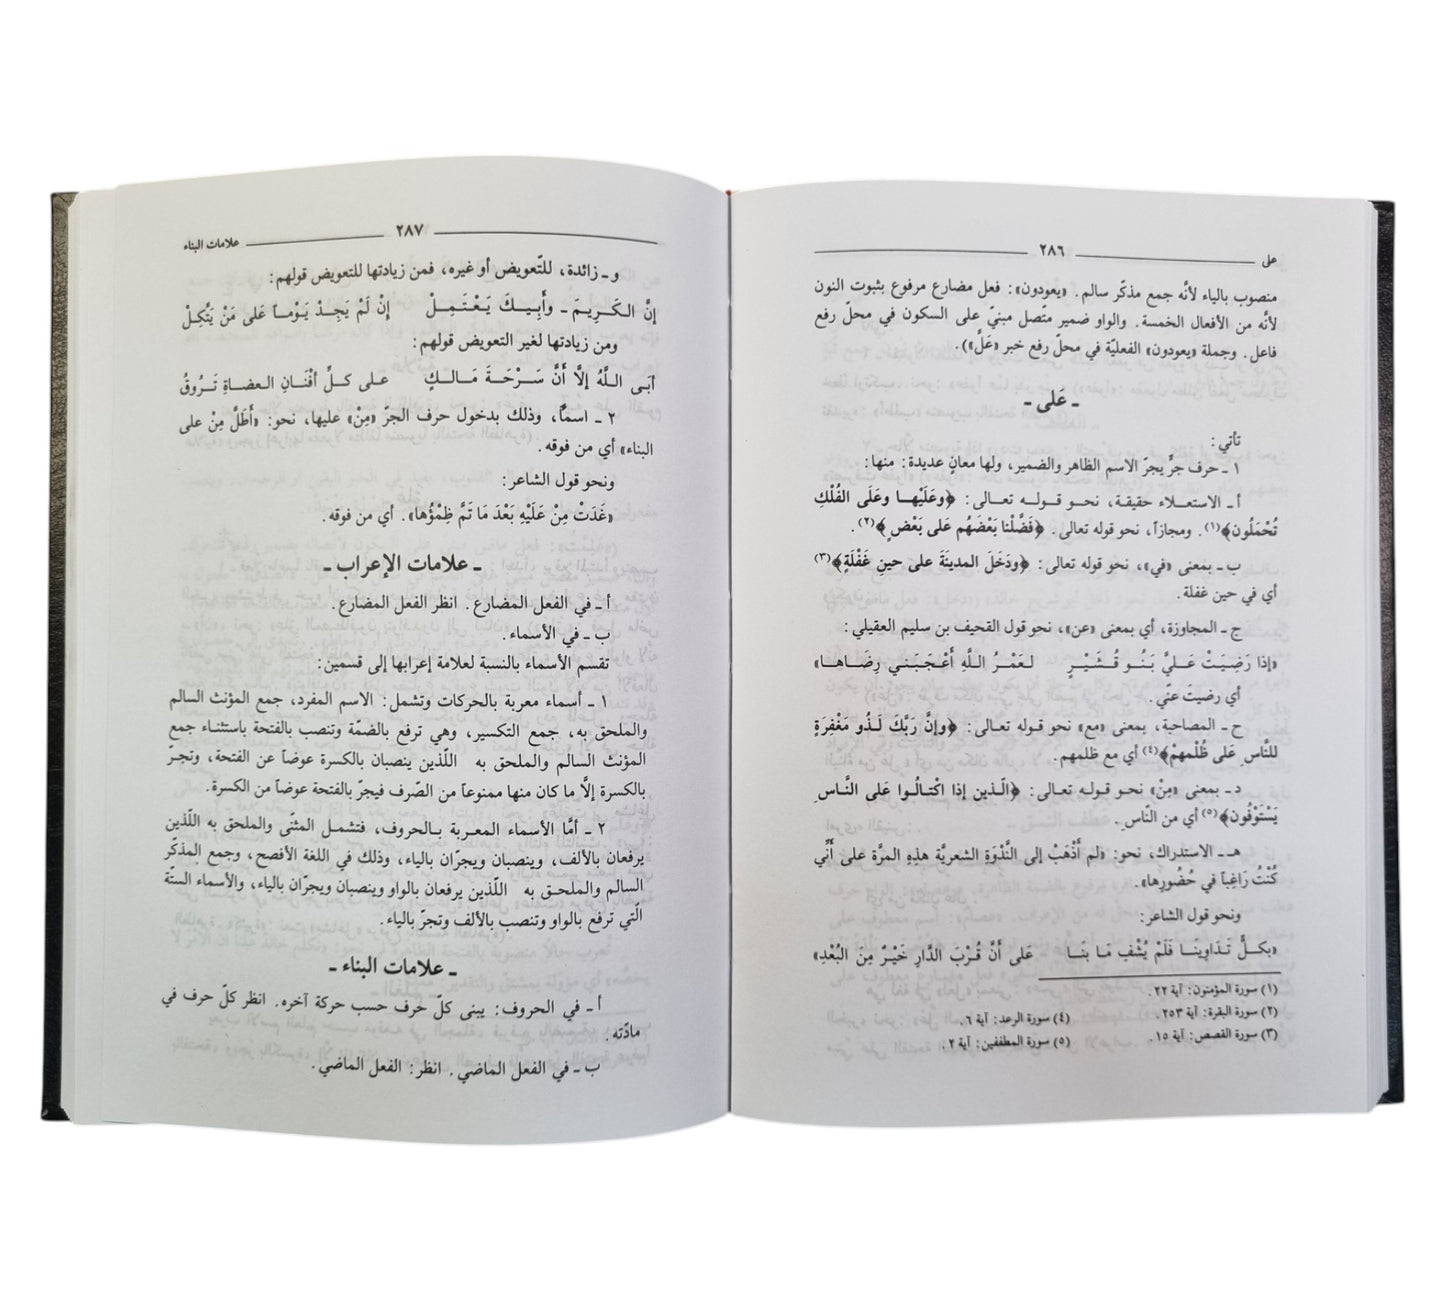 ٢٨٦
على
منصوب بالياء لأنَّه جمع مذكّر سالم. «يعودون»: فعل مضارع مرفوع بثبوت النون
لأنَّه من الأفعال الخمسة. والواو ضمير متّصل مبنيّ على السكون في محلّ رفع
فاعل. وجملة «يعودون» الفعليّة في محلّ رفع خبر «عَلَّ»).
ـ عَلى ـ
تأتي:
١ ـ حرف جرٍّ يجرّ الاسم الظاهر والضمير، ولها معانٍ عديدة: منها:
أ ـ الاستعلاء حقيقة، نحو قوله تعالى: ﴿وعَلَيْها وعَلَى الفُلْكِ
تُحْمَلُون﴾(١). ومجازاً، نحو قوله تعالى. ﴿فَضَّلْنا بَعْضَهُم عَلى بَعْضٍ﴾(٢).
ب ـ بمعنى «في»، نحو قوله تعالى: ﴿ودَخَلَ المدينَةَ على حينِ غَفْلَةٍ﴾(٣)
أي في حين غفلة.
ج ـ المجاوزة، أي بمعنى «عن»، نحو قول القحيف بن سليم العقيلي:
«إذا رَضِيَتْ عَليَّ بَنُو قُشَيْرٍ لعَمْرُ اللَّهِ أَعْجَبَني رِضَاها»
أي رضيتَ عنّي.
ح ـ المصاحبة، بمعنى «مع» نحو قوله تعالى: ﴿وإنَّ رَبَّكَ لَذُو مَغْفِرَةٍ
للنَّاسِ عَلى ظُلْمهِمْ﴾(٤) أي مع ظلمهم.
د ـ بمعنى «مِنْ» نحو قوله تعالى: ﴿الَّذين إذا اكْتالُوا عَلى النَّاسِ
يَسْتَوْفُون﴾(٥) أي من النّاس.
هـ ـ الاستدراك، نحو: «لم أَذْهَبْ إلى النَّدْوَةِ الشعريَّة هذِهِ المرَّة على أَنِّي
كُنْتُ رَاغِباً في حُضُورِها».
ونحو قول الشاعر:
«بكلٍّ تَدَاوينَا فَلَمْ يُشْفِ مَا بنَا عَلى أَنَّ قُرْبَ الدَّارِ خَيْرٌ مِنَ البُعْدِ»
(١) سورة المؤمنون: آية ٢٢.
(٢) سورة البقرة: آية ٢٥٣.
(٣) سورة القصص: آية ١٥.
(٤) سورة الرعد: آية ٦.
(٥) سورة المطففين: آية ٢.
٢٨٧
علامات البناء
و ـ زائدة، للتّعويض أو غيره، فمن زيادتها للتعويض قولهم:
إنَّ الكَرِيمَ ـ وأَبِيكَ يَعْتَمِلْ إِنْ لَمْ يَجِدْ يَوْماً عَلى مَنْ يَتَّكِلْ
ومن زيادتها لغير التعويض قولهم:
أبَى اللَّهُ إلاَّ أَنَّ سَرْحَةَ مَالكٍ على كلِّ أفْنَانِ العضاةِ تَرُوقُ
٢ ـ اسماً، وذلك بدخول حرف الجرّ «مِنْ» عليها، نحو: «أَطَلَّ مِنْ على
البناء» أي من فوقه.
ونحو قول الشاعر:
«غَدَتْ مِنْ عَلَيْهِ بَعْدَ مَا تَمَّ ظِمْؤُها». أي من فوقه.
ـ علامات الإعراب ـ
أ ـ في الفعل المضارع. انظر الفعل المضارع.
ب ـ في الأسماء.
تقسم الأسماء بالنسبة لعلامة إعرابها إلى قسمين:
١ ـ أسماء معربة بالحركات وتشمل: الاسم المفرد، جمع المؤنث السالم
والملحق به، جمع التكسير، وهي ترفع بالضمّة وتنصب بالفتحة باستثناء جمع
المؤنث السالم والملحق به اللّذين ينصبان بالكسرة عوضاً عن الفتحة، وتجرّ
بالكسرة إلَّا ما كان منها ممنوعاً من الصّرف فيجرّ بالفتحة عوضاً من الكسرة.
٢ ـ أمَّا الأسماء المعربة بالحروف، فتشمل المثنّى والملحق به اللّذين
يرفعان بالألف، وينصبان ويجرّان بالياء، وذلك في اللغة الأفصح، وجمع المذكّر
السالم والملحق به اللّذين يرفعان بالواو وينصبان ويجرّان بالياء، والأسماء الستّة
الّتي ترفع بالواو وتنصب بالألف وتجرّ بالياء.
ـ علامات البناء ـ
أ ـ في الحروف: يبنى كلّ حرف حسب حركة آخره. انظر كلّ حرف في
مادّته.
ب ـ في الفعل الماضي. انظر: الفعل الماضي.